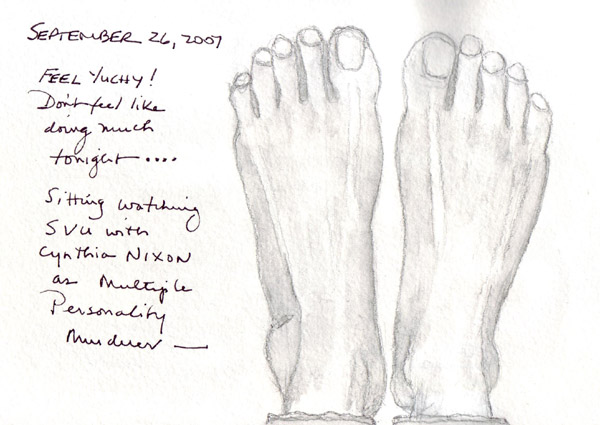 SEPTEMBER 26, 2007
FEEL YUCHY!
Don't feel like
doing much
tonight ....
Sitting watching
SVU with
Cynthia NIXON
as Multiple
Personality
Murderer —